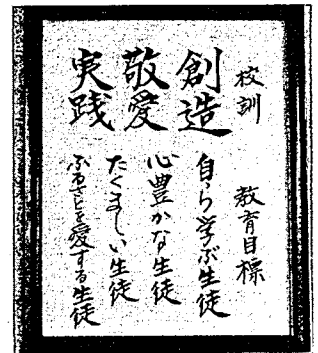 校訓
創造
敬愛
実践
教育目標
自ら学ぶ生徒
心豊かな生徒
たくましい生徒
ふるさとを愛する生徒